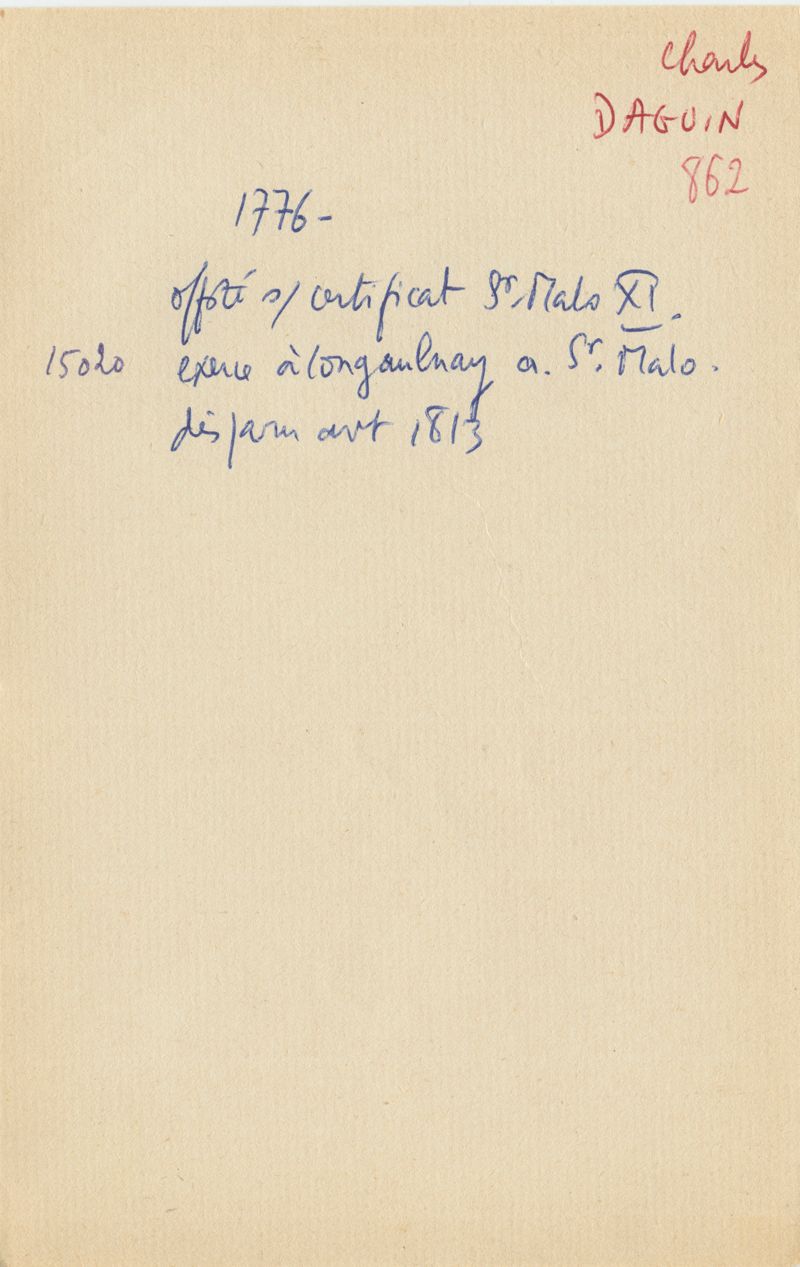 Charles
DAGUIN
862
1776-
s/ certificat St. Malo XI.
15020 exerce à Longaulnay a. St. Malo.
avt 1813